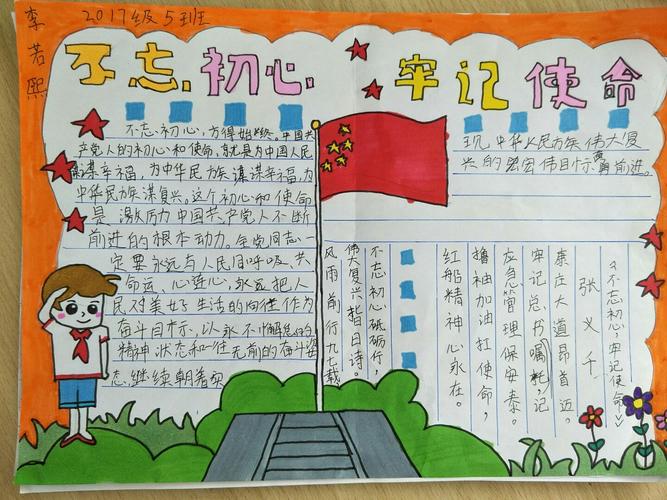 2017级5班
李若熙
不忘初心 牢记使命
不忘初心，方得始终。中国共
产党人的初心和使命，就是为中国人民
谋幸福，为中华民族谋幸福，为
中华民族谋复兴，这个初心和使命
是激励中国共产党人不断
前进的根本动力。全党同志一
定要永远与人民同呼吸、共
命运、心连心，永远把人
民对美好生活的向往作为
奋斗目标，以永不懈怠的
精神状态和一往无前的奋斗姿
态，继续朝着实
现中华人民族伟大复
兴的宏宏伟目标奋勇前进。
《不忘初心，牢记使命》
张义千
康庄大道昂首迈。
牢记总书嘱托，记
应急管理保安泰。
撸袖加油扛使命，
红船精神心永在。
不忘初心砥砺行，
伟大复兴皆日诗。
风雨前行九七载